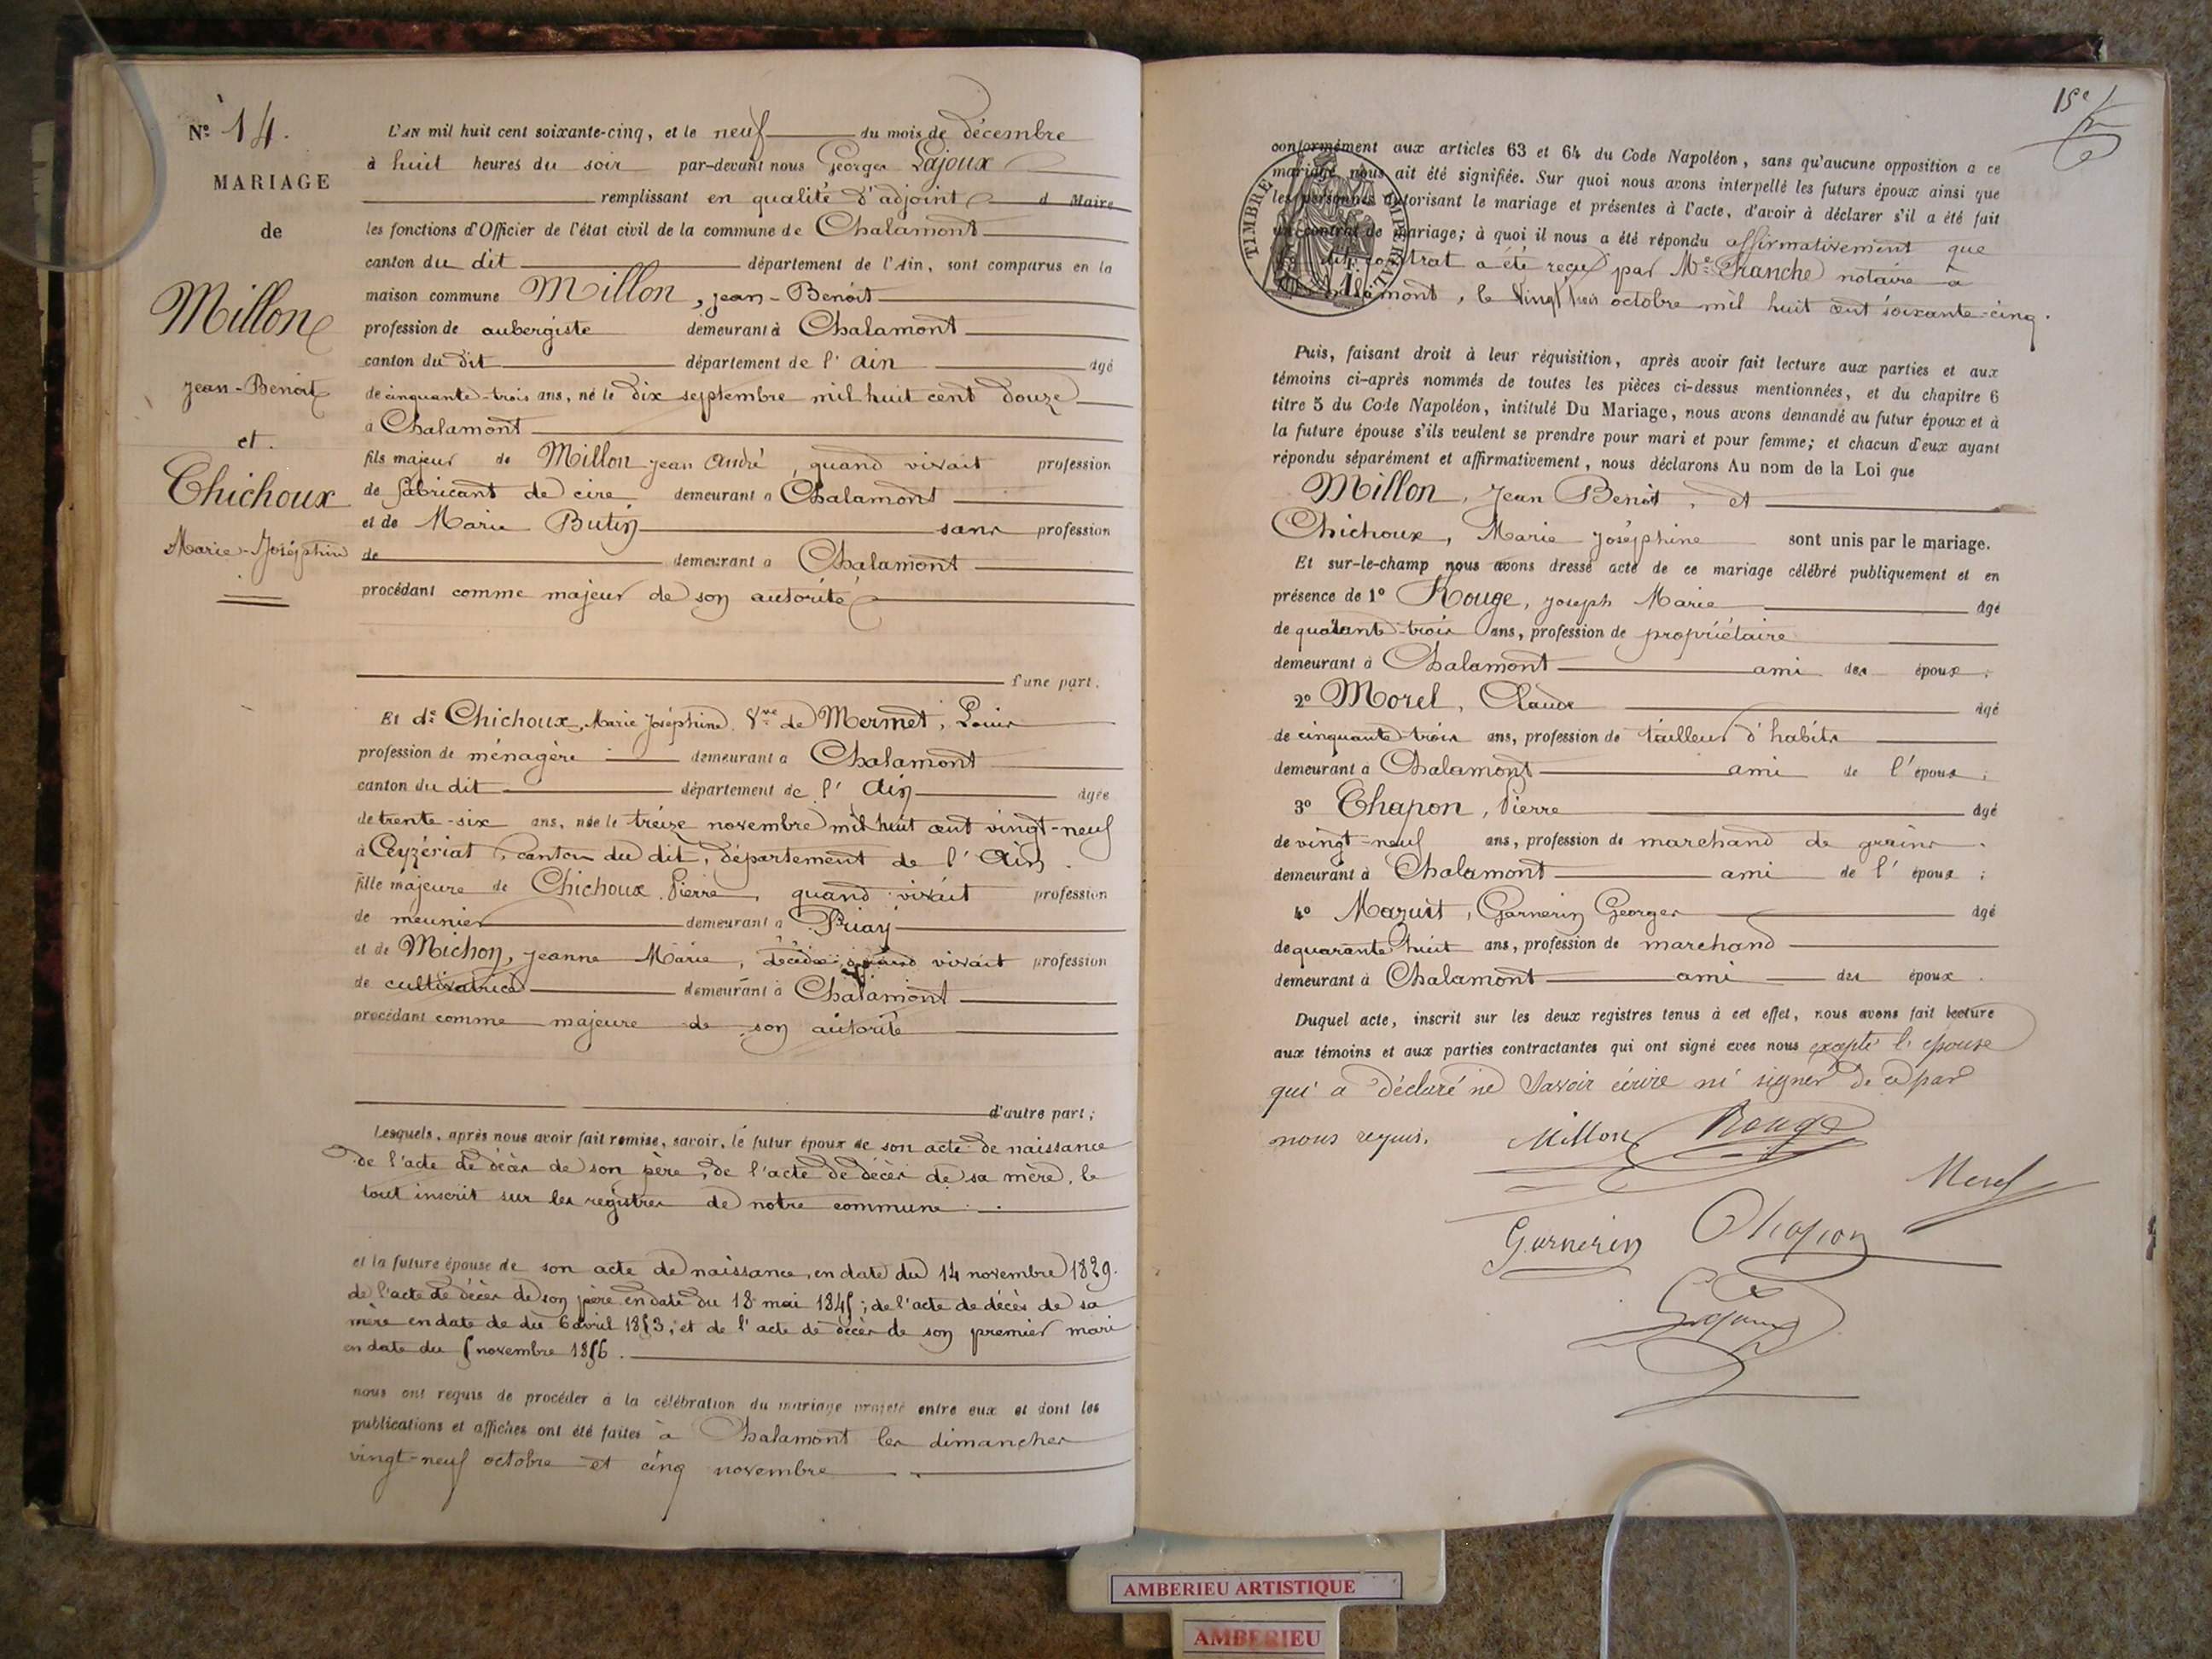 N° 14.
MARIAGE
de
Millon
Jean-Benoit
et
Chichoux
Marie-Joséphine
L'AN mil huit cent soixante-cinq, et le neuf du mois de décembre
à huit heures du soir par-devant nous Georges Lajoux
remplissant en qualité d'adjoint d Maire
les fonctions d'Officier de l'état civil de la commune de Chalamont
canton du dit département de l'Ain, sont comparus en la
maison commune Millon, Jean-Benoit
profession de aubergiste demeurant à Chalamont
canton du dit département de l'Ain âgé
de cinquante-trois ans, né le dix septembre mil huit cent douze
à Chalamont
fils majeur de Millon Jean André, quand vivait profession
de fabricant de cire demeurant à Chalamont
et de Marie Butin sans profession
de demeurant à Chalamont
procédant comme majeur de son autorité
d'une part.
Et de Chichoux, Marie Joséphine Vve de Mermet, Louis
profession de ménagère demeurant à Chalamont
canton du dit département de l'Ain âgée
de trente-six ans, née le treize novembre mil huit cent vingt-neuf
à Ceyzériat, canton du dit, département de l'Ain.
fille majeure de Chichoux Pierre, quand vivait profession
de meunier demeurant à Priay
et de Michon, Jeanne Marie, décédée quand vivait profession
de cultivatrice demeurant à Chalamont
procédant comme majeure de son autorité
d'autre part;
Lesquels, après nous avoir fait remise, savoir, le futur époux de son acte de naissance
de l'acte de décès de son père, de l'acte de décès de sa mère, le
tout inscrit sur les registres de notre commune.
et la future épouse de son acte de naissance, en date du 14 novembre 1829.
de l'acte de décès de son père en date du 18 mai 1845; de l'acte de décès de sa
mère en date de du 6 avril 1853; et de l'acte de décès de son premier mari
en date du 5 novembre 1856.
nous ont requis de procéder à la célébration du mariage projeté entre eux et dont les
publications et affiches ont été faites à Chalamont les dimanches
vingt-neuf octobre et cinq novembre
15e
conformément aux articles 63 et 64 du Code Napoléon, sans qu'aucune opposition à ce
mariage nous ait été signifiée. Sur quoi nous avons interpellé les futurs époux ainsi que
les personnes autorisant le mariage et présentes à l'acte, d'avoir à déclarer s'il a été fait
un contrat de mariage; à quoi il nous a été répondu affirmativement que
dit contrat a été reçu par Me Franche notaire à
Chalamont, le vingt trois octobre mil huit cent soixante-cinq.
TIMBRE IMPERIAL
Puis, faisant droit à leur réquisition, après avoir fait lecture aux parties et aux
témoins ci-après nommés de toutes les pièces ci-dessus mentionnées, et du chapitre 6
titre 5 du Code Napoléon, intitulé Du Mariage, nous avons demandé au futur époux et à
la future épouse s'ils veulent se prendre pour mari et pour femme; et chacun d'eux ayant
répondu séparément et affirmativement, nous déclarons Au nom de la Loi que
Millon, Jean Benoit, et
Chichoux, Marie Joséphine sont unis par le mariage.
Et sur-le-champ nous avons dressé acte de ce mariage célébré publiquement et en
présence de 1° Rouge, Joseph Marie âgé
de quarante-trois ans, profession de propriétaire
demeurant à Chalamont ami des époux;
2° Morel, Claude âgé
de cinquante-trois ans, profession de tailleur d'habits
demeurant à Chalamont ami de l'époux;
3° Chapon, Pierre âgé
de vingt-neuf ans, profession de marchand de grains.
demeurant à Chalamont ami de l'époux;
4° Mazuit, Garnerin Georges âgé
de quarante huit ans, profession de marchand
demeurant à Chalamont ami des époux.
Duquel acte, inscrit sur les deux registres tenus à cet effet, nous avons fait lecture
aux témoins et aux parties contractantes qui ont signé avec nous excepté l'épouse
qui a déclaré ne savoir écrire ni signer de ce par
nous requis.
Millon Rouge
Morel
Garnerin Chapon
Lajoux
AMBERIEU ARTISTIQUE
AMBERIEU